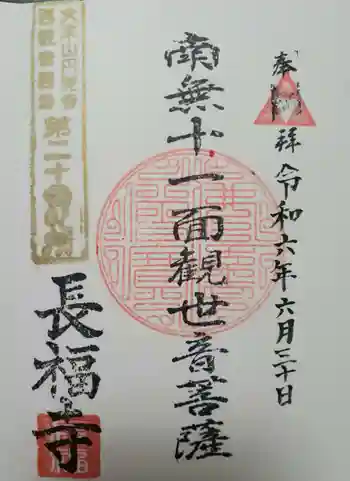 奉拝
令和六年六月三十日
南無十一面観世音菩薩
第二十
長福寺